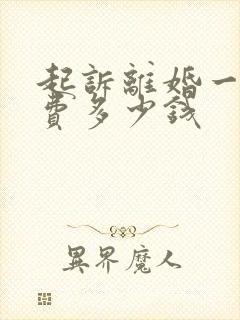 起訴離婚一
費多少錢
異界魔人